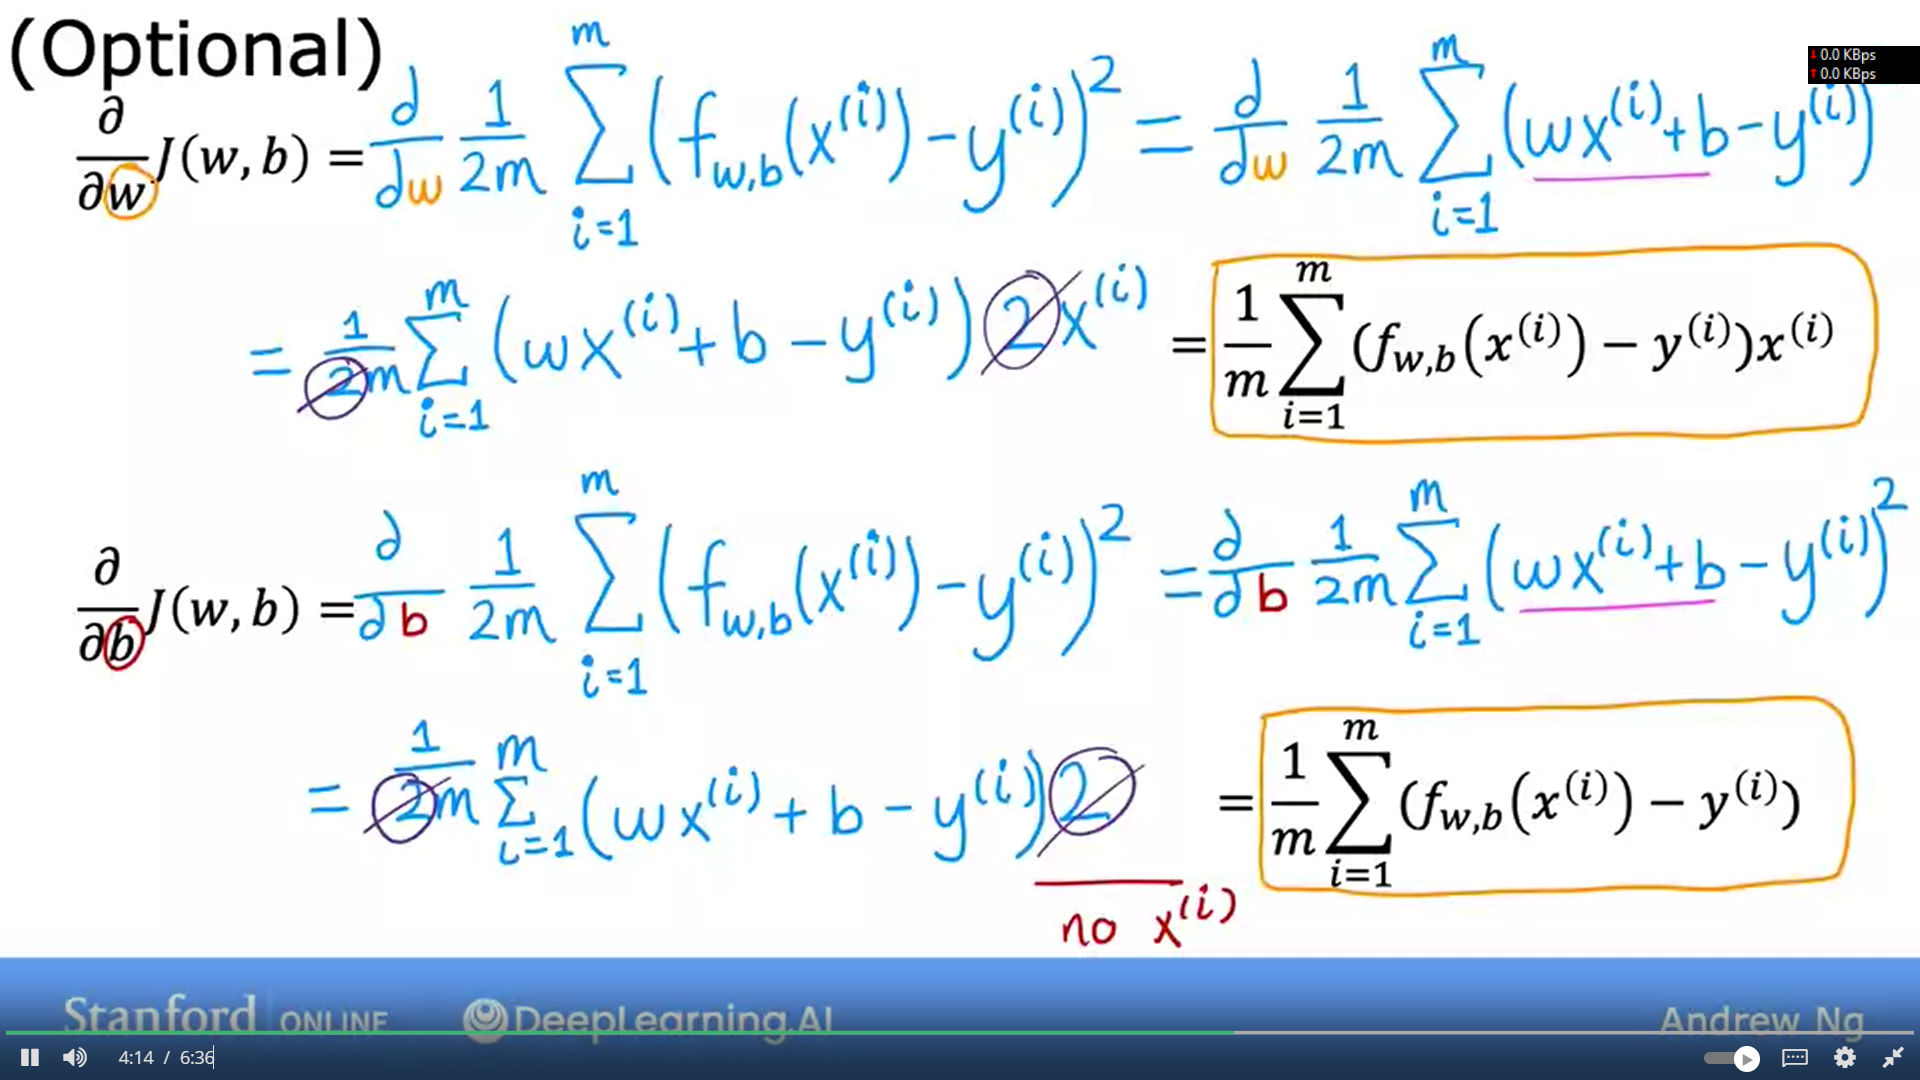 (Optional)
↓ 0.0 KBps
↑ 0.0 KBps
∂/∂w J(w, b) = d/dw 1/2m ∑_{i=1}^{m} (f_{w,b}(x^{(i)}) - y^{(i)})^2 = d/dw 1/2m ∑_{i=1}^{m} (wx^{(i)} + b - y^{(i)})
= 1/2m ∑_{i=1}^{m} (wx^{(i)} + b - y^{(i)}) 2x^{(i)} = 1/m ∑_{i=1}^{m} (f_{w,b}(x^{(i)}) − y^{(i)})x^{(i)}
∂/∂b J(w, b) = ∂/∂b 1/2m ∑_{i=1}^{m} (f_{w,b}(x^{(i)}) - y^{(i)})^2 = ∂/∂b 1/2m ∑_{i=1}^{m} (wx^{(i)} + b - y^{(i)})^2
= 1/2m ∑_{i=1}^{m} (wx^{(i)} + b - y^{(i)}) 2 = 1/m ∑_{i=1}^{m} (f_{w,b}(x^{(i)}) − y^{(i)})
no x^{(i)}
Stanford ONLINE DeepLearning.AI Andrew Ng
4:14 / 6:36